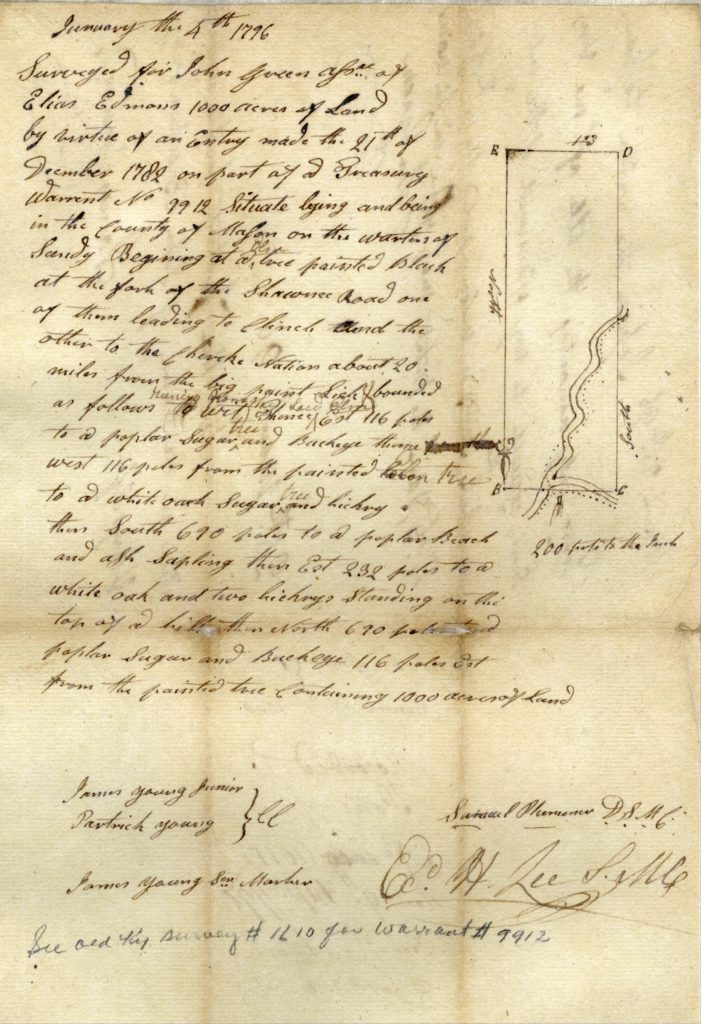 January the 4th 1796
Surveyed for John Green assee of
Elias Edmons 1000 acres of Land
by virtue of an Entry made the 21th of
December 1782 on part of a Treasury
Warrent No 9912 Situate lying and being
in the County of Mason on the warters of
Sandy Begining at a Elm tree painted Black
at the fork of the Shawnee Road one
of them leading to Clinch and the
other to the Cheroke Nation about 20
miles from the big paint Lick bounded
as follows to wit Est 116 poles
to a poplar Sugar tree and Buckeye thence
west 116 poles from the painted tree
to a white oak Sugar tree and hickry
then South 690 poles to a poplar Beach
and ash Sapling then Est 232 poles to a
white oak and two hickrys Standing on the
top of a hill then North 690 poles to
poplar Sugar and Buckeye 116 poles Est
from the painted tree Containing 1000 acres of Land
E
D
B
C
South
200 pols to the Inch
James young Junior
Partrick young
} CC
James young Senr Marker
Samuel Plummer D.S.M.C.
Ed. H. Lee S.MC
See old Ky. Survey # 1610 for Warrant # 9912